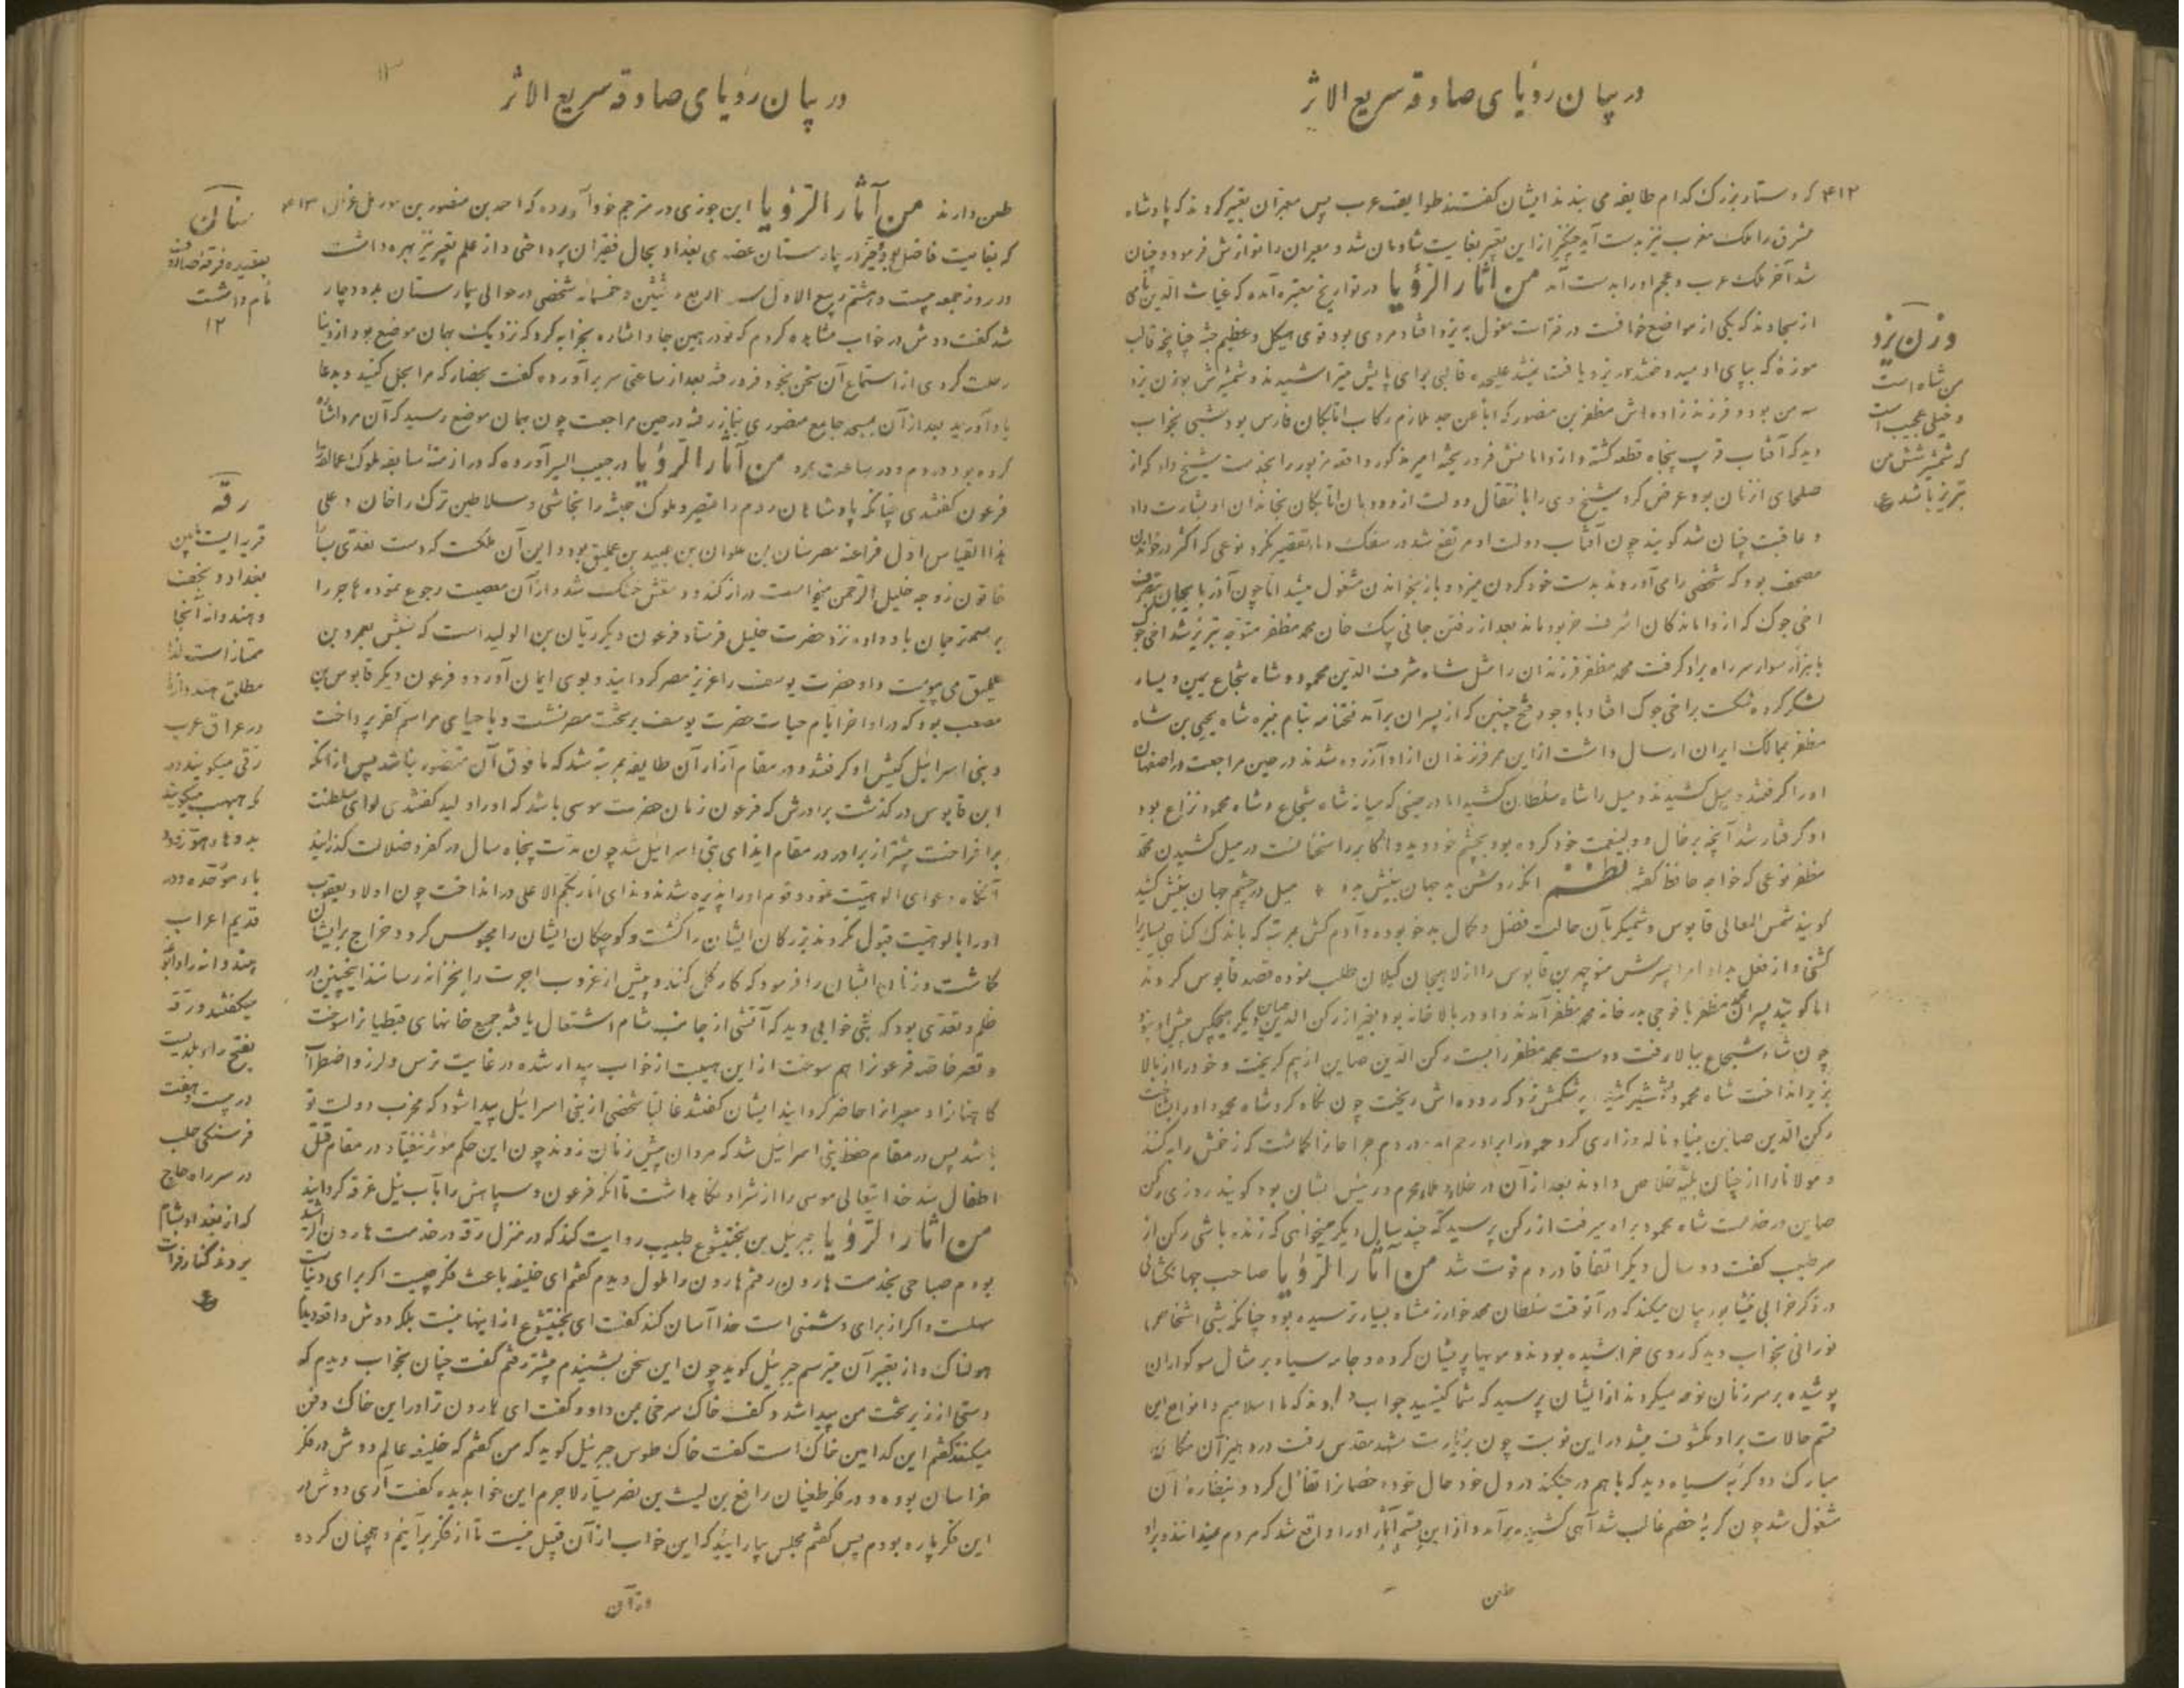 در بیان رؤیای صادقه سریع الاثر
۴۱۲ که دستار بزرگ کدام طایفه می بندند ایشان گفتند طوایف عرب پس معبران تعبیر کردند که پادشاه
مشرق را ملک مغرب نیز بدست آید چنگیز ازین تعبیر بغایت شادمان شد و معبران را نوازش فرمود و چنان
شد آخر ملک عرب و عجم او را بدست آمد من آثار الرؤیا در تواریخ معتبره آمده که غیاث الدین نامی
از سجاوند که یکی از مواضع خوافست در فترات مغول به یزد افتاد مردی بود قوی هیکل و عظیم جثه چنانچه قالب
موزه که بپای او
دید که آفتاب قریب پنجاه قطعه گشته و از دامانش فرو ریخته امیر مذکور واقعه مزبور را بخدمت شیخ داد که از
صلحای آن زمان بود عرض کرد شیخ وی را بانتقال دولت از دودمان اتابکان بخاندان او بشارت داد
و عاقبت چنان شد گویند چون آفتاب دولت او مرتفع شد در سفک دما تقصیر نکرد نوعی که اکثر در خواندن
مصحف بود که شخصی را می آوردند بدست خود گردن میزد و باز بخواندن مشغول میشد اما چون آذربایجان
اخی جوک که از واماندگان اشرف خر بود ماند بعد از رفتن جانی بیک خان محمد مظفر متوجه تبریز شد اخی جوک
با هزار سوار سر راه براو گرفت محمد مظفر فرزندان را مثل شاه شرف الدین محمود و شاه شجاع یمین و یسار
لشکر کرده شکست بر اخی جوک افتاد با وجود فتح چنین که از پسران برآمد فتحنامه بنام نبیره شاه یحیی بن شاه
مظفر بممالک ایران ارسال داشت از این ممر فرزندان از او آزرده شدند در حین مراجعت در اصفهان
او را گرفتند و میل کشیدند و میل را شاه سلطان کشید اما در حینی که میانه شاه شجاع و شاه محمود نزاع بود
او گرفتار شد آنچه بر خال و ولینعمت خود کرده بود بچشم خود دید
مظفر نوعی که خواجه حافظ گفته نظم آنکه روشن بد جهان بینش بدو ٭ میل در چشم جهان بینش کشید
گویند شمس المعالی قابوس وشمگیر بآن حالت فضل و کمال بدخو بوده و آدم کش بمرتبه که باندک گناهی
کشتی و از فعل بد او امرا پسرش منوچهر بن قابوس را از لاهیجان گیلان طلب نموده قصد قابوس کردند
اما گویند پسران محمد مظفر با فوجی بدر خانه محمد مظفر آمدند و او در بالاخانه بود بغیر از رکن الدین صاین دیگر هیچکس پیش او نبود
چون شاه شجاع ببالا رفت و دست محمد مظفر را بست رکن الدین صاین از بیم گریخت و خود را از بالا
بزیر انداخت شاه محمود
رکن الدین صاین بنیاد ناله و زاری کرد
و مولانا را از چنان بلیه خلاص دادند بعد از آن در خلا و ملا محرم و رئیس ایشان بود گویند روزی رکن
صاین در خدمت شاه محمود براه میرفت از رکن پرسید که چند سال دیگر میخواهی که زنده باشی رکن از
سر طیب گفت دو سال دیگر اتفاقا در دوم فوت شد من آثار الرؤیا صاحب جهانگشای
در ذکر خرابی نیشابور بیان میکند که در آنوقت سلطان محمد خوارزمشاه بسیار ترسیده بود چنانکه شبی اشخاص
نورانی بخواب دید که روی خراشیده بودند و مویها پریشان کرده و جامه سیاه بر مثال سوگواران
پوشیده بر سر زنان نوحه میکردند از ایشان پرسید که شما کیستید جواب دادند که ما اسلامیم و انواع این
قسم حالات براو مکشوف میشد در این نوبت چون بزیارت مشهد مقدس رفت در دهلیز آن مکان
مبارک دو گربه سیاه دید که باهم در جنگند در دل خود حال خود و خصمانرا تفأل کرد و بنظاره آن
مشغول شد چون گربه خصم غالب شد آهی کشیده برآمد و از این قسم آثار او را واقع شد که مردم میدانند و براو
طعن
وزن یزد
من شاه است
و خیلی عجیب است
که شمشیر شش من
تبریز باشد
در بیان رؤیای صادقه سریع الاثر
طعن دارند من آثار الرؤیا ابن جوزی در مترجم خود آورده که احمد بن منصور بن ۴۱۳
که بغایت فاضل بود و فقیر در بیمارستان عضدی بغداد بحال فقیران پرداختی و از علم تعبیر نیز بهره داشت
در روز جمعه بیست و هشتم ربیع الاول شخصی در حوالی بیمارستان بدو دچار
شد گفت دوش در خواب مشاهده کردم که تو در همین جا و اشاره بخرابه کرد که نزدیک بهمان موضع بود از دنیا
رحلت کردی از استماع آن سخن بخود فرو رفته بعد از ساعتی سر برآورده گفت بحضار که مرا بحل کنید و بدعا
یاد آورید بعد از آن بمسجد جامع منصوری بنماز رفته در حین مراجعت چون بهمان موضع رسید که آن مرد اشاره
کرده بود در دم و در ساعت بمرد من آثار الرؤیا در حبیب السیر آورده که در ازمنه سابقه ملوک عمالقه را
فرعون گفتندی چنانکه پادشاهان روم را قیصر و ملوک حبشه را نجاشی و سلاطین ترک را خان و علی
هذا القیاس اول فراعنه مصر سنان بن علوان بن عبید بن عملیق بود و این آن ملکست که دست تعدی بسارا
خاتون زوجه خلیل الرحمن میخواست دراز کند و دستش خشک شد و از آن معصیت رجوع نموده هاجر را
فرستاد فرعون دیگر ریان بن الولید است که نسبش بعمرو بن
عملیق می پیوست و او حضرت یوسف را عزیز مصر گردانید و بوی ایمان آورد و فرعون دیگر قابوس بن
مصعب بود که در اواخر ایام حیات حضرت یوسف بر تخت مصر نشست و باحیای مراسم کفر پرداخت
و بنی اسرائیل کیش او گرفتند و در مقام آزار آن طایفه بمرتبه شد که مافوق آن متصور نباشد پس از آنکه
ابن قابوس درگذشت برادرش که فرعون زمان حضرت موسی باشد که او را ولید گفتندی لوای سلطنت
برافراخت بیشتر از برادر در مقام ایذای بنی اسرائیل شد چون مدت پنجاه سال در کفر و ضلالت گذرانید
آنگاه دعوای الوهیت نمود و قوم او را پذیره شدند و ندای انا ربکم الاعلی در انداخت چون اولاد یعقوب
او را بالوهیت قبول نکردند بزرگان ایشان را کشت و کوچکان ایشان را محبوس کرد و خراج بر ایشان
گماشت و زنان ایشان را فرمود که کار گل کنند و پیش از غروب اجرت را بخزانه رسانند اینچنین در
ظلم و تعدی بود که شبی خوابی دید که آتشی از جانب شام اشتعال یافته جمیع خانهای قبطیانرا سوخت
و قصر خاصه فرعونرا هم سوخت از این هیبت از خواب بیدار شده در غایت ترس و لرز و اضطراب
کاهنانرا و معبرانرا حاضر گردانید ایشان گفتند غالبا شخصی از بنی اسرائیل پیدا شود که مخرب دولت تو
باشد پس در مقام حفظ بنی اسرائیل شد که مردان پیش زنان نروند چون این حکم مؤثر نیفتاد در مقام قتل
اطفال شد خدایتعالی موسی را از شر او نگاه داشت تا آنکه فرعون و سپاهش را بآب نیل غرقه گردانید
من آثار الرؤیا جبرئیل بن بختیشوع طبیب روایت کند که در منزل رقه در خدمت هارون الرشید
بودم صباحی بخدمت هارون رفتم هارون را ملول دیدم گفتم ای خلیفه باعث فکر چیست اگر برای دنیاست
سهلست و اگر از برای دشمنی است خدا آسان کند گفت ای بختیشوع از اینها نیست بلکه دوش واقعه دیدم
هولناک و از تعبیر آن میترسم جبرئیل گوید چون این سخن بشنیدم پیشتر رفتم گفت چنان بخواب دیدم که
دستی از زیر تخت من پیدا شد و کف خاک سرخی بمن داد و گفت ای هارون ترا در این خاک دفن
میکنند گفتم این کدامین خاک است گفت خاک طوس جبرئیل گوید که من گفتم که خلیفه عالم دوش در فکر
خراسان بوده و در فکر طغیان رافع بن لیث بن نصر سیار لاجرم این خوابدیده گفت آری دوش در
این فکر پاره بودم پس گفتم مجلس بیارایند که این خواب از آن قبیل نیست تا از فکر برآئیم و همچنان کرده
در آن
سنان
بعقیده فرقه صادوق
نام داشت
۱۲
رقه
قریه ایست مابین
بغداد و نجف
و هندوانه آنجا
ممتاز است لهذا
مطلق هندوانه را
در عراق عرب
رقی میگویند و در
مکه حبحب میگویند
باء موحده و در
قدیم اعراب
هندوانه را
میگفتند و رقه
بفتح راء بلدیست
در بیست و هفت
فرسنگی حلب
در سر راه حاج
که از بغداد بشام
بروند کنار فرات